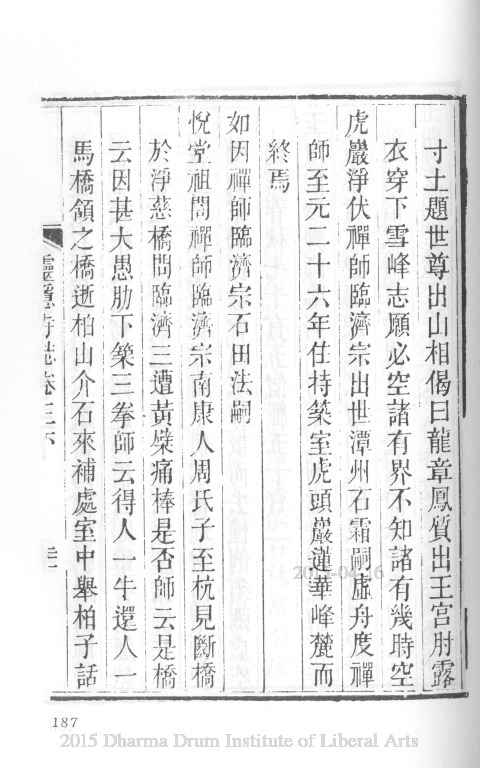 寸土題世尊出山相偈曰龍章鳳質出王宮肘露
衣穿下雪峰志願必空諸有界不知諸有幾時空
虎巖淨伏禪師臨濟宗出世潭州石霜嗣虛舟度禪
師至元二十六年住持築室虎頭巖蓮華峰麓而
終焉
如因禪師臨濟宗石田法嗣
悅堂祖誾禪師臨濟宗南康人周氏子至杭見斷橋
於淨慈橋問臨濟三遭黃檗痛棒是否師云是橋
云因甚大愚肋下築三拳師云得人一牛還人一
馬橋頷之橋逝柏山介石來補處室中舉柏子話
靈隱寺誌卷三下
187
2015 Dharma Drum Institute of Liberal Arts